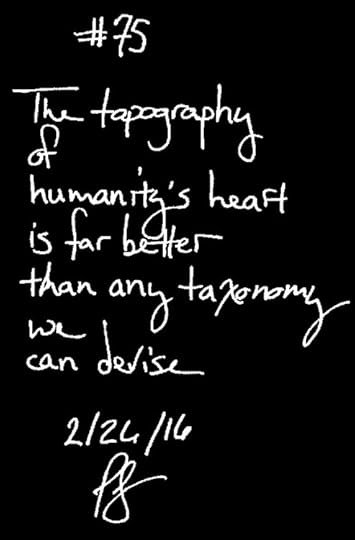 #75
The tapography
of
humanity's heart
is far better
than any taxonomy
we
can devise
2/26/16